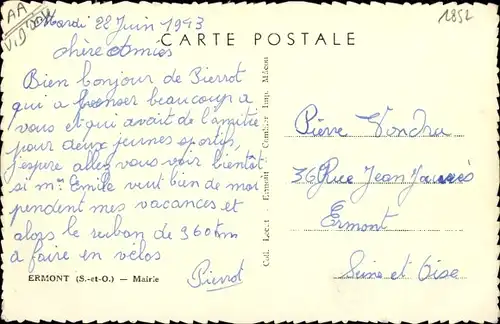 AA
1852
Mardi 22 Juin 1943
CARTE POSTALE
chère et amies
Bien bonjour de Pierrot
qui a penser beaucoup a
vous et qui avait de l'amitie
pour deux jeunes sportifs
j'espire allez vous voir bientôt
si mr Emile veut bien de moi
pendent mes vacances et
alors le ruban de 360 km
a faire en vélos
Pierrot
ERMONT (S.-et-O.) — Mairie
Ermont - Combier Imp. Mâcon
Pierre Vondra
36 Rue Jean Jaurès
Ermont
Seine et Oise